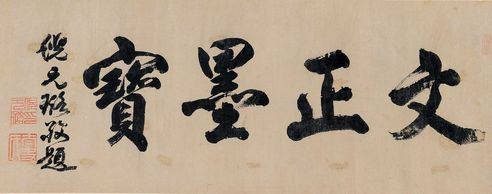 文正墨寶
倪元璐敬題